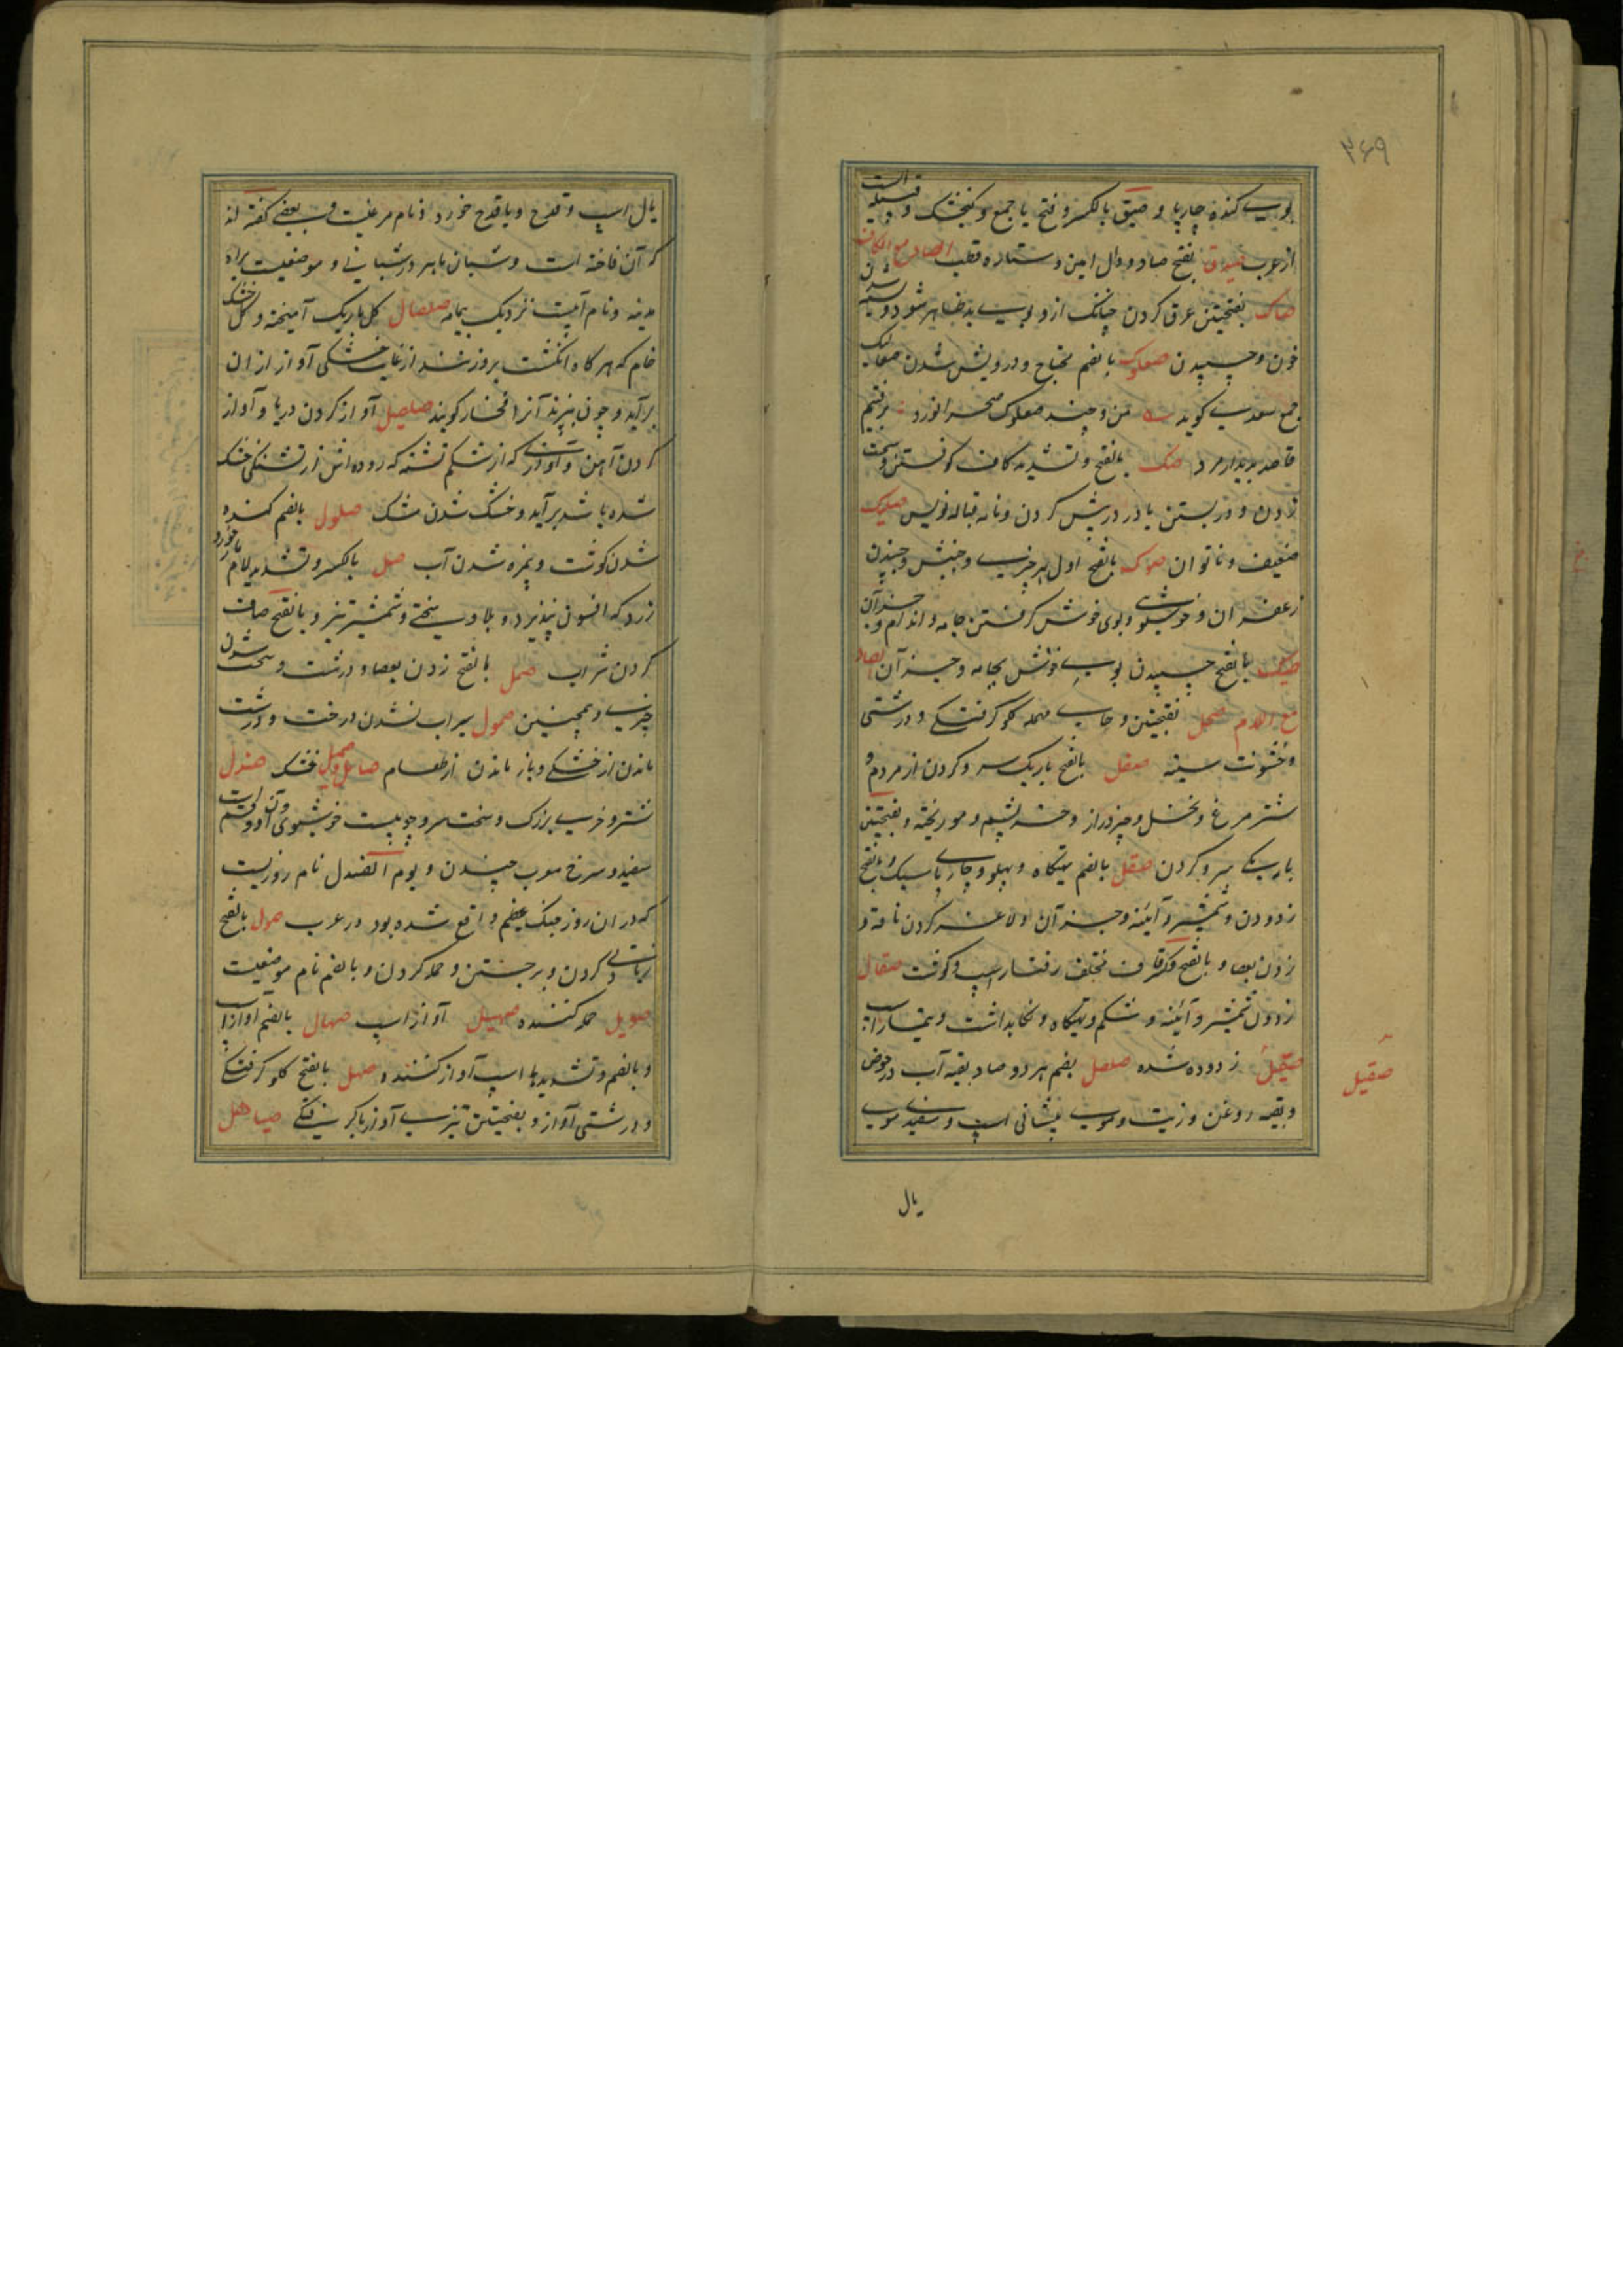 ۳۶۹
بوی کنده چارپا و صیق بالکسر و فتح یا جمع و گنجشک و قبیله است
از عرب صیدق بفتح صاد و دال امین و ستاره قطب الصاد مع الکاف
صاک بفتحتین عرق کردن چنانک ازو بوی بد ظاهر شود و بسته شدن
خون و چسپیدن صعلوک بالضم محتاج و درویش شدن صعالیک
جمع سعدی گوید تن و چند صعلوک صحرا نورد برفتیم
قاصد بدیدار مرد صک بالفتح و تشدید کاف کوفتن و سخت
زدن و در بستن یا در پیش کردن و نامه قباله نویس صکیک
ضعیف و ناتوان صوک بالفتح اول هر چیزی و جنبش و چسپیدن
زعفران و خوشبوی و بوی خوش گرفتن جامه و اندام و جز آن
صیک بالفتح چسپیدن بوی خوش بجامه و جز آن الصاد
مع اللام صحل بفتحتین و حای مهمله گلو گرفتگی و درشتی
و خشونت سینه صعل بالفتح باریک سر و گردن از مردم و
شتر مرغ و نخل و چیز دراز و خر پشم و مو ریخته و بفتحتین
باریکی سر و گردن صقل بالضم تهیگاه و پهلو و چارپا سبک و بالفتح
زدودن و شمشیر و آئینه و جز آن و لاغر کردن ناقه و
زدن بعصا و بالفتح و کسر قاف مختلف رفتار اسپ و کوفت صقال
زدودن شمشیر و آئینه و شکم و تهیگاه و نگاهداشت و تیمار اسپ
صقیل زدوده شده صلصل بضم هر دو صاد بقیه آب در حوض
صقیل
و بقیه روغن و زیت و موی پیشانی اسپ و سفیدی موی
یال
یال اسپ و قدح و یا قدح خورد و نام مرغیست و بعضی گفته اند
که آن فاخته است و شبان ماهر در شبانی و موضعیست براه
مدینه و نام آبیست نزدیک یمامه صلصال گل باریک آمیخته و گل خشک
خام که هرگاه انگشت برو زنند از غایت خشکی آواز از ان
برآید و چون بپزند آنرا فخار گویند صلاصل آواز کردن دریا و آواز
کردن آهن و آوازی که از شکم تشنه که روده اش از تشنگی خشک
شده باشد برآید و خشک شدن مشک صلول بالضم گنده
شدن گوشت و بمزه شدن آب صل بالکسر و تشدید لام مار خورد
زرد که افسون نپذیرد و بلا و سختی و شمشیر تیز و بالفتح صاف
کردن شراب صمل بالفتح زدن بعصا و درشت و سخت شدن
چیزی و همچنین صمول سیراب نشدن درخت و درشت
ماندن از خشکی و باز ماندن از طعام صامل و صمیل خشک صندل
شتر و خر بزرگ و سخت سر و چوبیست خوشبوی و آن دو قسم است
سفید و سرخ معرب چندن و یوم الصندل نام روزیست
که در ان روز جنگ عظیم واقع شده بود در عرب صول بالفتح
زیادتی کردن و برجستن و حمله کردن و بالضم نام موضعیست
صویل حمله کننده صهیل آواز اسپ صهال بالضم آواز اسپ
و بالضم و تشدید ها اسپ آواز کننده صهل بالفتح گلو گرفتگی
و درشتی آواز و بفتحتین تیزی آواز با گرفتگی صیاهل